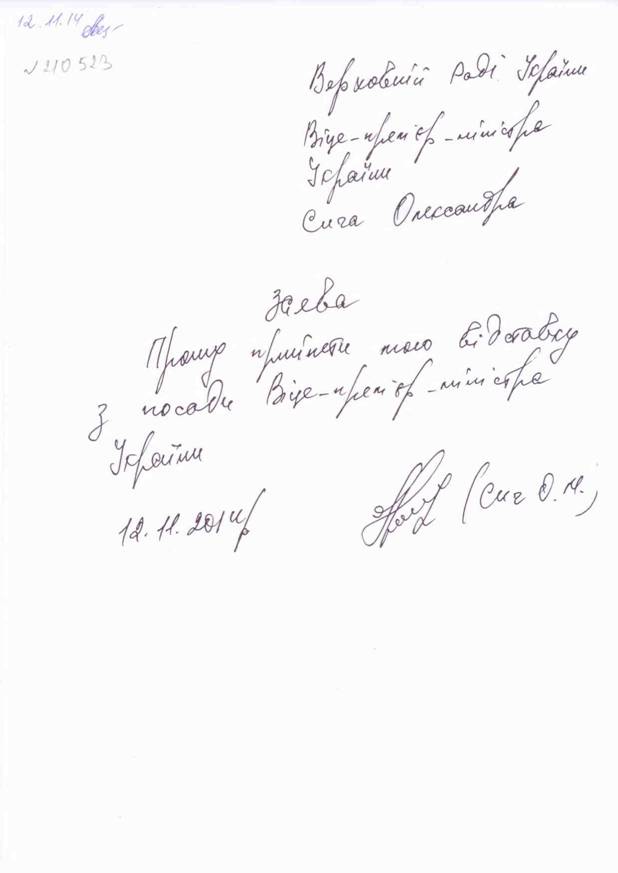 12.11.14
№ 210523
Верховній Раді України
Віце-прем'єр-міністра
України
Сича Олександра
Заява
Прошу прийняти мою відставку
з посади Віце-прем'єр-міністра
України
12.11.2014р
(Сич О.М.)